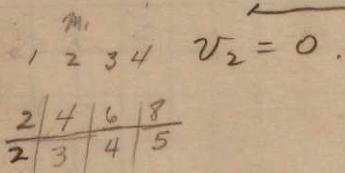 m,
1 2 3 4 v₂ = 0.
2 | 4 | 6 | 8
2 | 3 | 4 | 5